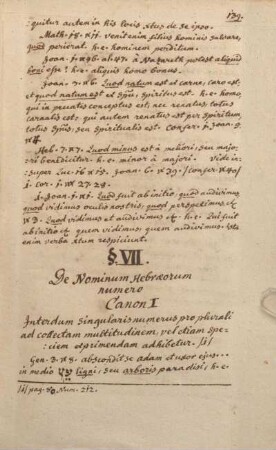 139.
quitur autem in his locis Xtus de se ipso.
Math. 18. X 11. venit enim filius hominis salvare,
quod perierat. h. e. hominem perditum.
Joan. 1. X 46. al. 47. à Nazareth potest aliquid
boni esse? h. e. aliquis homo bonus.
Joan. 3. X 6. Quod natum est et carne, caro est,
et quod natum est et spū, Spiritus est. h. e. homo,
qui in peccatis conceptus est, nec renatus totus
carnalis est. qui autem renatus est per Spiritum,
totus spūs, seu spiritualis est. Confer. 1. Joan. 5.
X 4.
Heb. 7. X 7. Quod minus est à meliori, seu majo-
ri benedicitur. h. e. minor à majori. Vide in-
super Luc. 16 X 15. Joan. 6. X 39. /confer X 40/
1. cor. 1. X 27. 28.
1. Joan. 1. X 1. Quod fuit ab initio, quod audivimus
quod vidimus oculis nostris, quod perspeximus &c
X 3. Quod vidimus et audivimus &c. h. e. Qui fuit
ab initio &c quem vidimus, quem audivimus. Iste
enim verba Xtum respiciunt.
§. VII.
De Nominum Hebræorum
numero
Canon I
Interdum singularis numerus pro plurali
ad collectam multitudinem, vel etiam spe-
ciem exprimendam adhibetur. /a/
Gen. 3. X 8. abscondit se Adam et uxor ejus ...
in medio עץ ligni, seu arboris paradisi, h. e.
/a/ pag. 80. Num. 212.